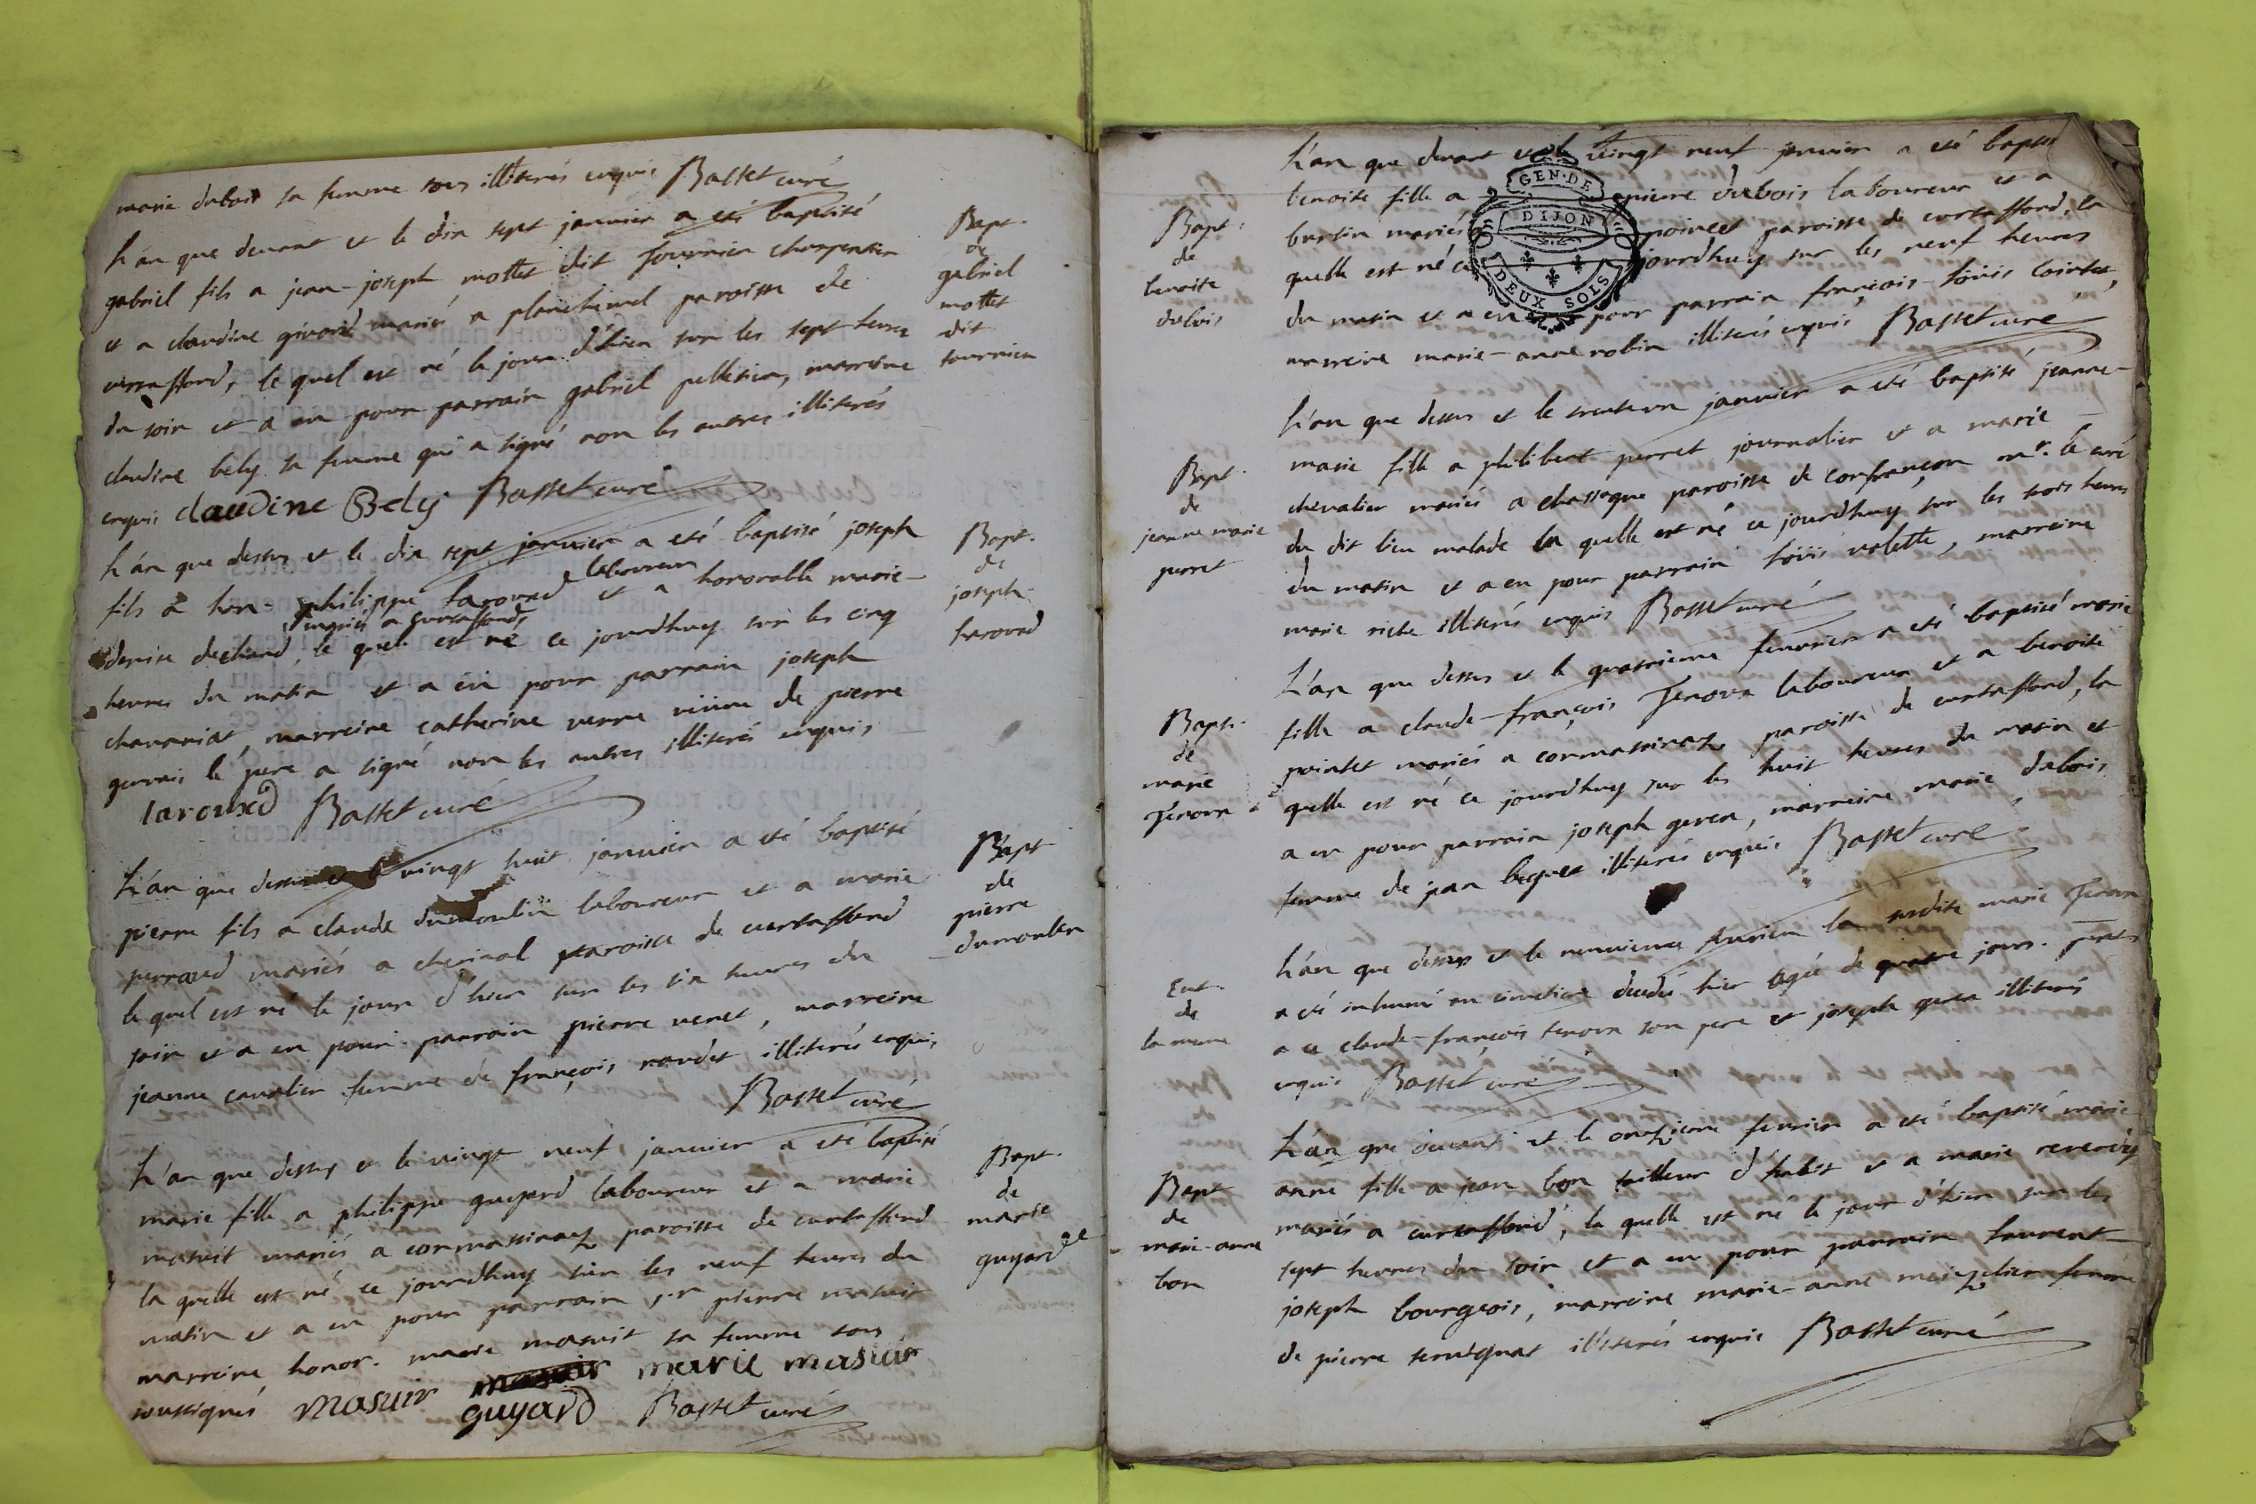 marie dubois sa femme tous illiterés enquis Basset curé
L'an que devant et le dix sept janvier a eté baptisé
gabriel fils a jean-joseph mottet dit fournier charpentier
et a claudine givord mariés a planchenel paroisse de
curtaffond, le quel est né le jour d'hier sur les sept heures
du soir et a eu pour parrain gabriel pelletier, marreine
claudine bely sa femme qui a signé non les autres illiterés
enquis claudine Bely Basset curé
Bapt.
de
gabriel
mottet
dit
fournier
L'an que dessus et le dix sept janvier a eté baptisé joseph
fils a hon. philippe laroud laboureur et a honorable marie-
denise dechand, mariés a curtaffond, le quel est né ce jourdhuy sur les cinq
heures du matin et a eu pour parrain joseph
chavariat, marreine catherine verne veuve de pierre
gervais le pere a signé non les autres illiterés enquis
larouxd Basset curé
Bapt.
de
joseph
laroud
L'an que dessus et le vingt huit janvier a eté baptisé
pierre fils a claude dumoulin laboureur et a marie
perraud mariés a cherinal paroisse de curtaffond
le quel est né le jour d'hier sur les six heures du
soir et a eu pour parrain pierre venet, marreine
jeanne cavalier femme de françois naudet illiterés enquis
Basset curé
Bapt
de
pierre
dumoulin
L'an que dessus et le vingt neuf janvier a eté baptisé
marie fille a philippe guyard laboureur et a marie
masuit mariés a cormassinaz paroisse de curtaffond
la quelle est né ce jourdhuy sur les neuf heures du
matin et a eu pour parrain sr pierre masuir
marreine honor. marie masuit sa femme tous
soussignés masuir marie masuir
guyard Basset curé
Bapt.
de
marie
guyard
L'an que devant et le vingt neuf janvier a eté baptisé
benoite fille a dubois laboureur et a
burtin mariés poincet paroisse de curtaffond, la
quelle est né ce jourdhuy sur les neuf heures
du matin et a eu pour parrain françois-loüis cointet,
marreine marie-anne robin illiterés enquis Basset curé
GEN. DE
DIJON
DEUX SOLS
Bapt.
de
benoite
dubois
L'an que dessus et le trenteun janvier a eté baptisé jeanne-
marie fille a philibert perret journalier et a marie
chevalier mariés a chassagne paroisse de confrançon mr. le curé
du dit lieu malade la quelle est né ce jourdhuy sur les trois heures
du matin et a eu pour parrain loüis valette, marreine
marie riche illiterés enquis Basset curé
Bapt.
de
jeanne marie
perret
L'an que dessus et le quatrieme fevrier a eté baptisé marie
fille a claude-françois Tenoux laboureur et a benoite
pointet mariés a cormassinaz paroisse de curtaffond, la
quelle est né ce jourdhuy sur les huit heures du matin et
a eu pour parrain joseph geren, marreine marie dubois
femme de jean beguet illiterés enquis Basset curé
Bapt.
de
marie
Tenoux
L'an que dessus et le neuvieme fevrier la susdite marie Tenoux
a eté inhumé au cimetiere decedé hier agée de quatre jours. presens
a ce claude-françois tenoux son pere et joseph geren illiterés
enquis Basset curé
Ent.
de
la meme
L'an que devant et le onzieme fevrier a eté baptisé marie
anne fille a jean bon tailleur d'habit et a marie reverdy
mariés a curtaffond, la quelle est né le jour d'hier sur les
sept heures du soir et a eu pour parrain laurent-
joseph bourgeois, marreine marie-anne femme
de pierre illiterés enquis Basset curé
Bapt
de
marie-anne
bon